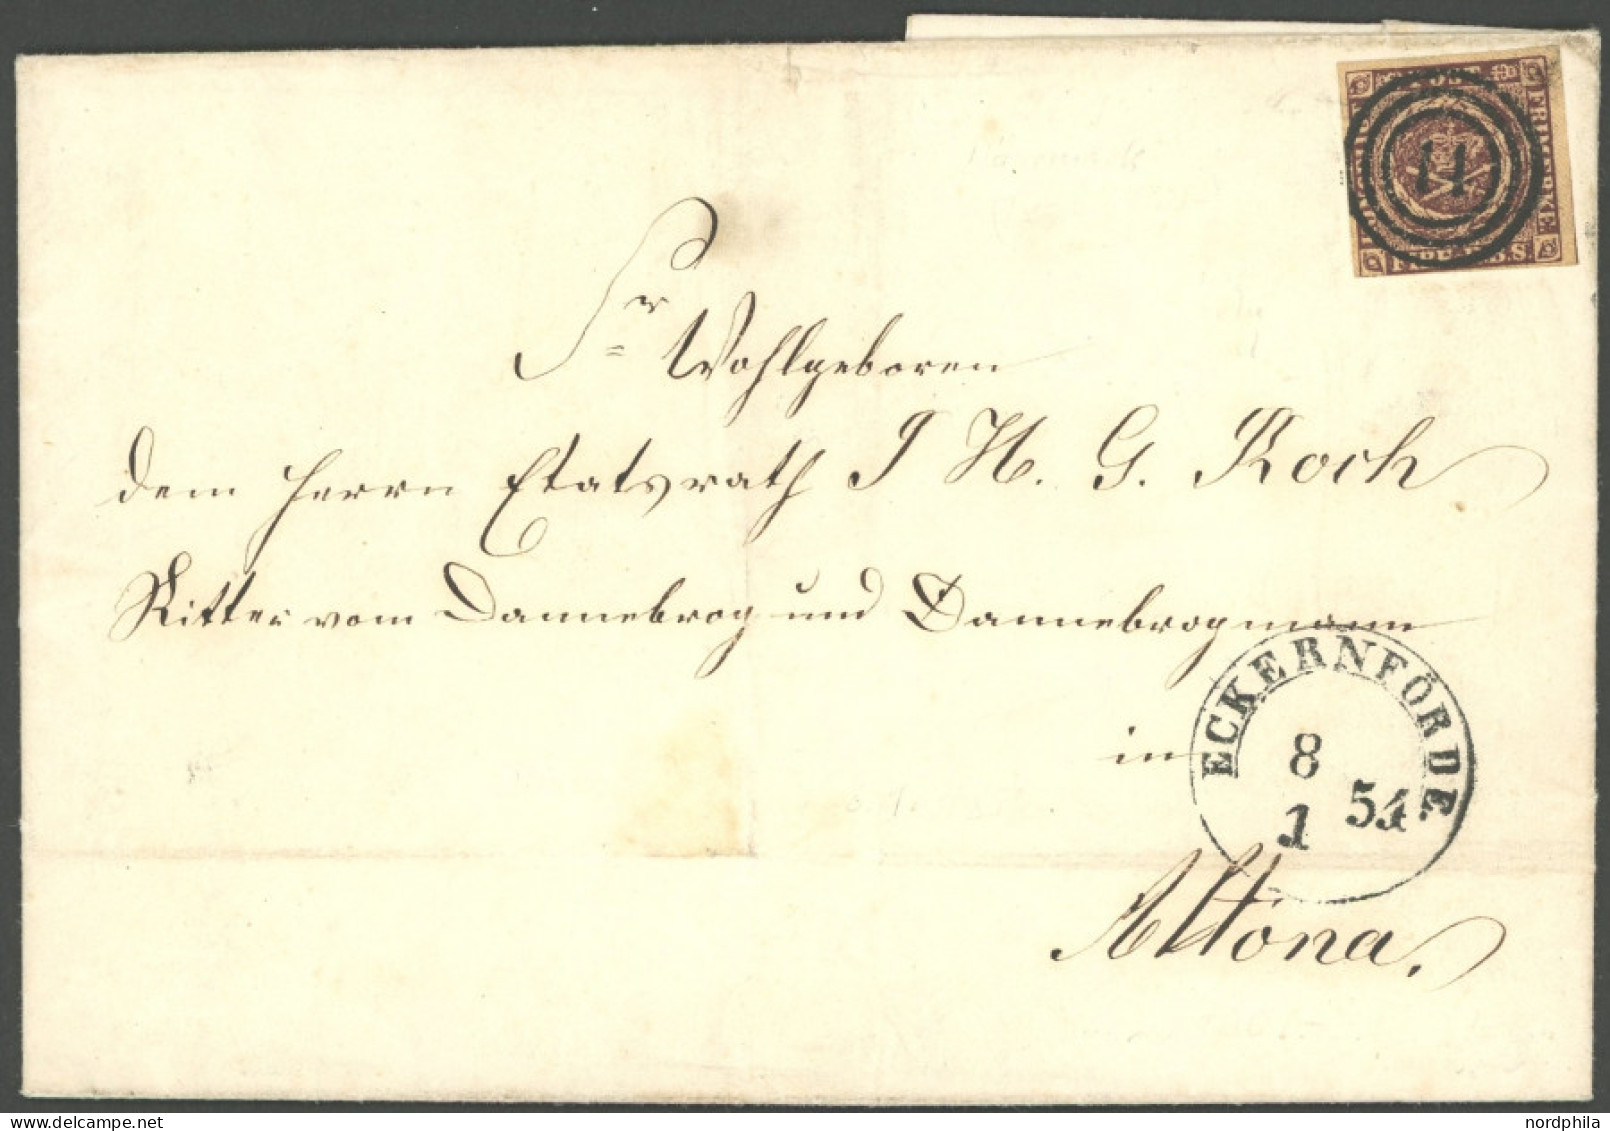 FRIMÆRKE
11
Sr Wohlgeboren
dem Herrn Etatsrath J H. G. Koch
Ritter vom Dannebrog und Dannebrogmann
in
ECKERNFÖRDE
8
1 54
Altona.
nordphila